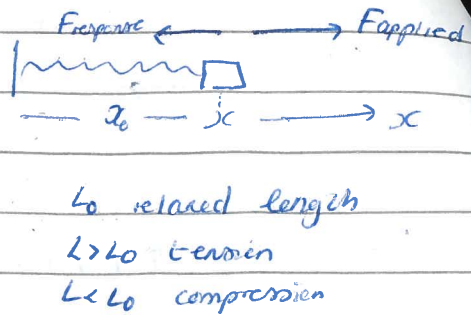 Fresponse Fapplied
x₀ x x
L₀ relaxed length
L>L₀ tension
L<L₀ compression